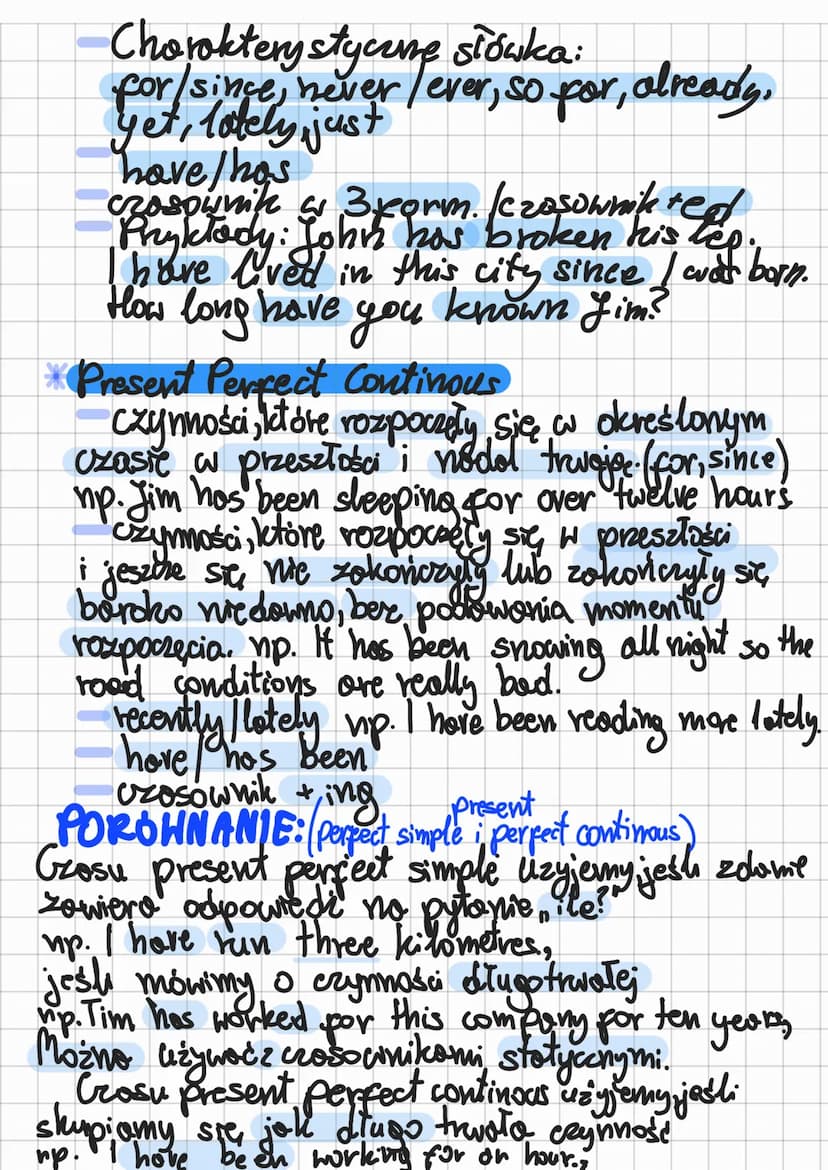 Charakterystyczne słówka:
for/since, never/ever, so far, already,
yet, lately, just
have/has
czasownik w 3 form. /czasownik +ed
Przykłady: John has broken his leg.
I have lived in this city since I was born.
How long have you known Jim?
* Present Perfect Continous
czynności, które rozpoczęły się w określonym
czasie w przeszłości i nadal trwają. (for, since)
np. Jim has been sleeping for over twelve hours
czynności, które rozpoczęły się w przeszłości
i jeszcze się nie zakończyły lub zakończyły się
bardzo niedawno, bez podawania momentu
rozpoczęcia. np. It has been snowing all night so the
road conditions are really bad.
recently/lately np. I have been reading more lately.
have/has been
czasownik + ing
present
PORÓWNANIE: (perfect simple i perfect continous)
Czasu present perfect simple użyjemy, jeśli zdanie
zawiera odpowiedź na pytanie „ile?"
np. I have run three kilometres,
jeśli mówimy o czynności długotrwałej
np. Tim has worked for this company for ten years,
Można używać z czasownikami statycznymi.
Czasu present perfect continous użyjemy, jeśli
skupiamy się, jak długo trwała czynność
np. I have been working for an hour.,